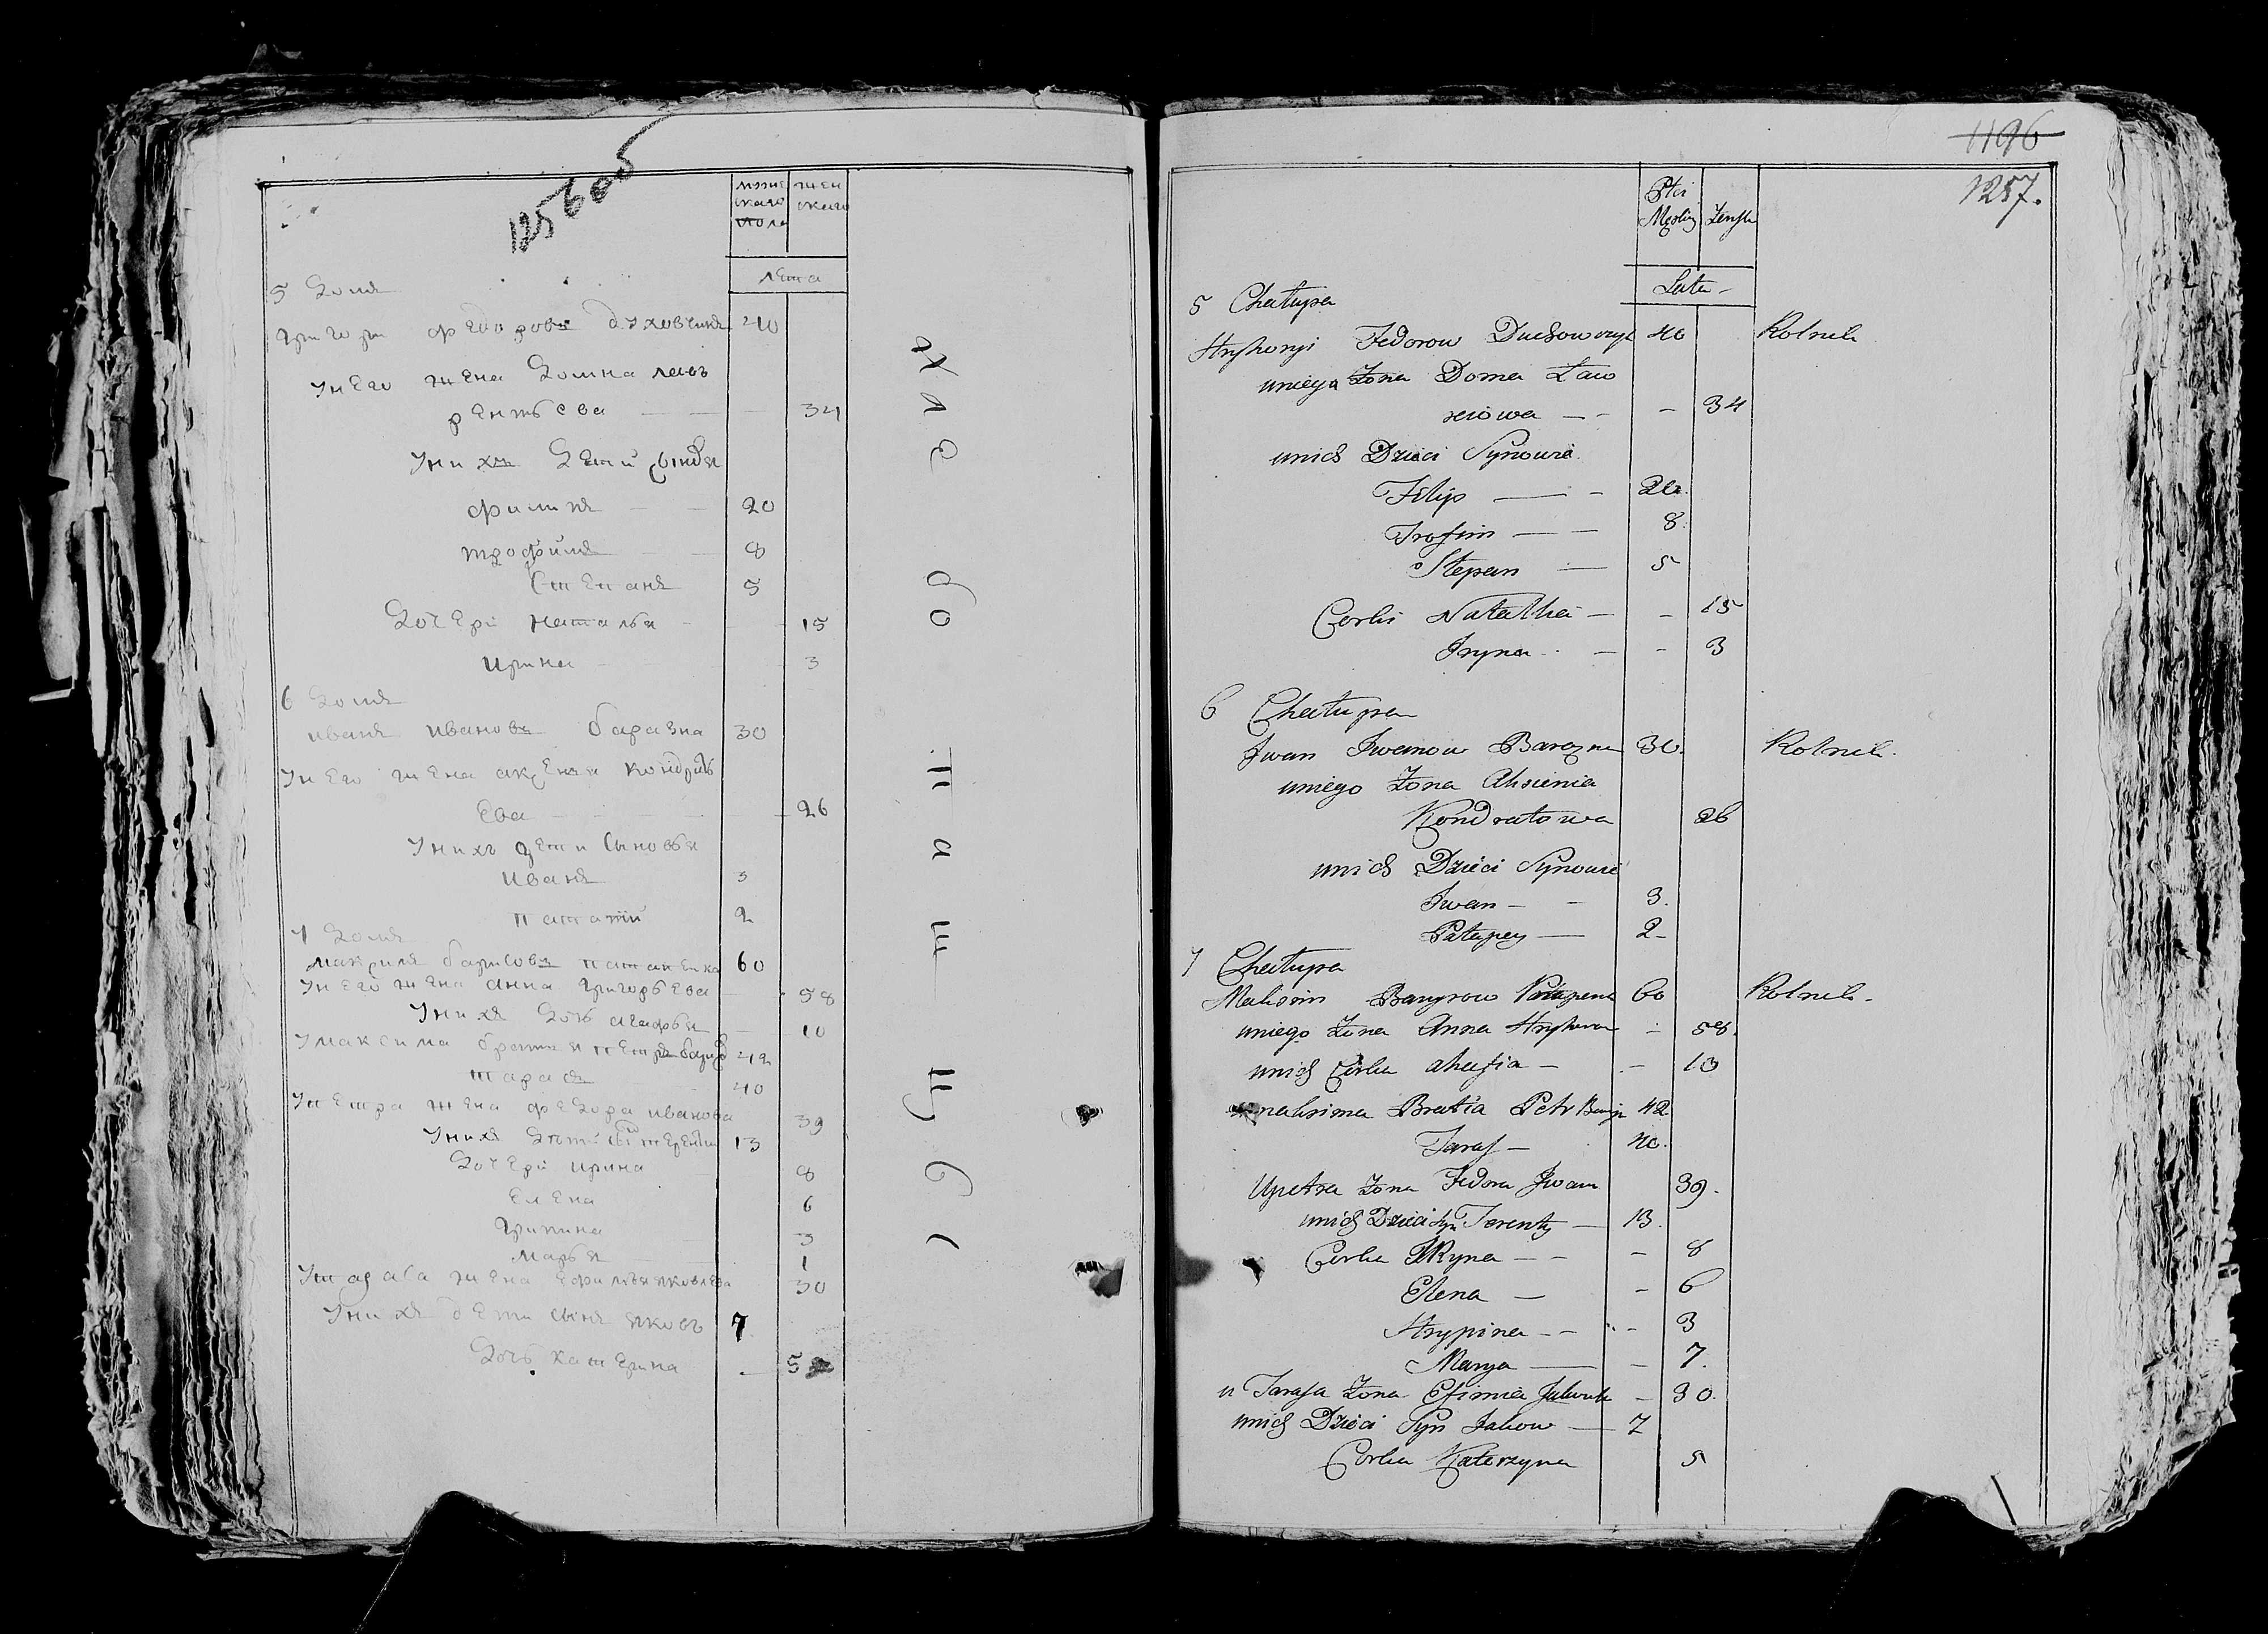 125605
муже
скаго
пола
жен
скаго
лета
5 домъ
григори федоровъ духовчикъ 40
унего жена домна лавъ
рентьева — 34
унихъ дети сыновя
филипъ — 20
трофимъ — 8
степанъ 5
дочери наталья — 15
ирина — 3
6 домъ
иванъ ивановъ баразна 30
унего жена аксенья кондрать
ева — 26
унихъ дети сыновья
иванъ 3
патапий 2
7 домъ
60
унего жена анна григорьева 58
унихъ дочь агафья — 10
умаксима братья петръ 42
тарасъ 40
упетра жена федора иванова 39
унихъ дети терентий 13
дочери ирина 8
елена 6
грипина 3
марья 1
утараса жена ефимья яковлева 30
унихъ дети сынъ яковъ 7
дочь катерина — 5
хлебопашцы
1196
1257.
Płci
Męskiej
Żeńsk
Lata —
5 Chałupa
Hryhoryi Fedorow Duchowczyk 40 Rolnik
uniego Żona Domna Law
reniowa — — — 34
unich Dzieci Synowie
Filip — — 20.
Trofim — — 8.
Stepan — 5
Corki Natallia — — 15
Iryna — — 3
6 Chałupa
Iwan Iwanow Barazna 30. Rolnik.
uniego Żona Aksienia
Kondratowa 26
unich Dzieci Synowie
Iwan — — 3.
Patupey — 2 —
7 Chałupa
Maksim 60 Rolnik —
uniego Żona Anna Hryhorowa — 58.
unich Corka Ahafia — — 10
umaksima Bratia Petr 42
Taras — 40.
Upetra Żona Fedora Iwan 39.
unich Dzieci Syn Terenty — 13.
Corka Iryna — — — 8
Elena — — 6
Hrypina — — — 3
Marya — — 7.
u Tarasa Żona Efimia — 30.
unich Dzieci Syn Jakow — 7
Corka Katerzyna 5